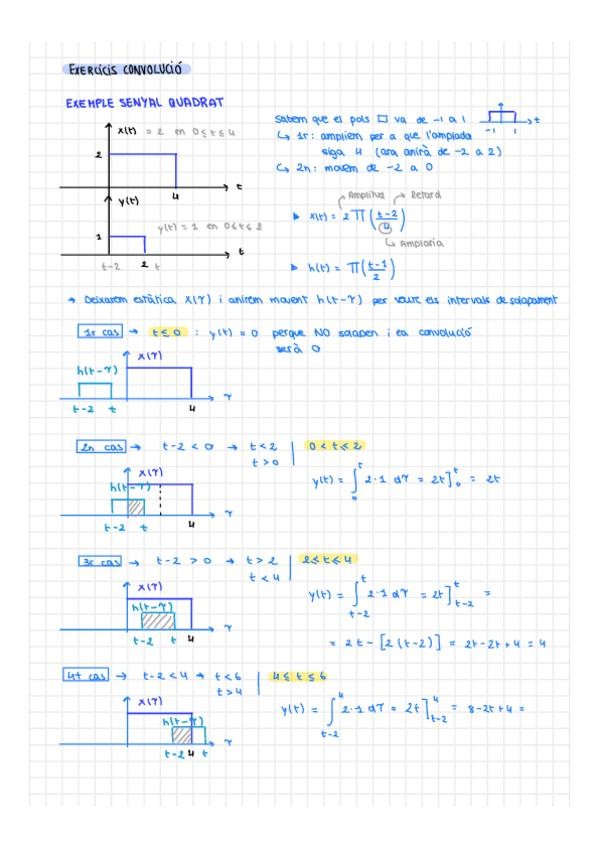 EXERCICIS CONVOLUCIÓ
EXEMPLE SENYAL QUADRAT
x(t) = 2 en 0≤t≤4
2
4
t
y(t)
y(t) = 1 en 0≤t≤2
1
t-2 2 t
t
Sabem que el pols □ va de -1 a 1
-1 1 t
↳ 1r: ampliem per a que l'amplada
siga 4 (ara anirà de -2 a 2)
↳ 2n: movem de -2 a 0
Amplitud Retard
▶ x(t) = 2 Π ( (t-2)/4 )
↳ Amplaria
▶ h(t) = Π ( (t-1)/2 )
→ Deixarem estàtica x(τ) i anirem movent h(t-τ) per veure els intervals de solapament
1r cas → t≤0 : y(t) = 0 perque NO solapen i la convolució
serà 0
x(τ)
h(t-τ)
t-2 t 4 τ
2n cas → t-2 < 0 → t<2 | 0<t≤2
t>0
x(τ)
h(t-τ)
t-2 t 4 τ
y(t) = ∫₀ᵗ 2·1 dτ = 2τ]₀ᵗ = 2t
3r cas → t-2 > 0 → t>2 | 2≤t≤4
t<4
x(τ)
h(t-τ)
t-2 t 4 τ
y(t) = ∫ₜ₋₂ᵗ 2·1 dτ = 2τ]ₜ₋₂ᵗ =
= 2t - [2(t-2)] = 2t-2t+4 = 4
4t cas → t-2<4 → t<6 | 4≤t≤6
t>4
x(τ)
h(t-τ)
t-2 4 t τ
y(t) = ∫ₜ₋₂⁴ 2·1 dτ = 2τ]ₜ₋₂⁴ = 8-2t+4 =